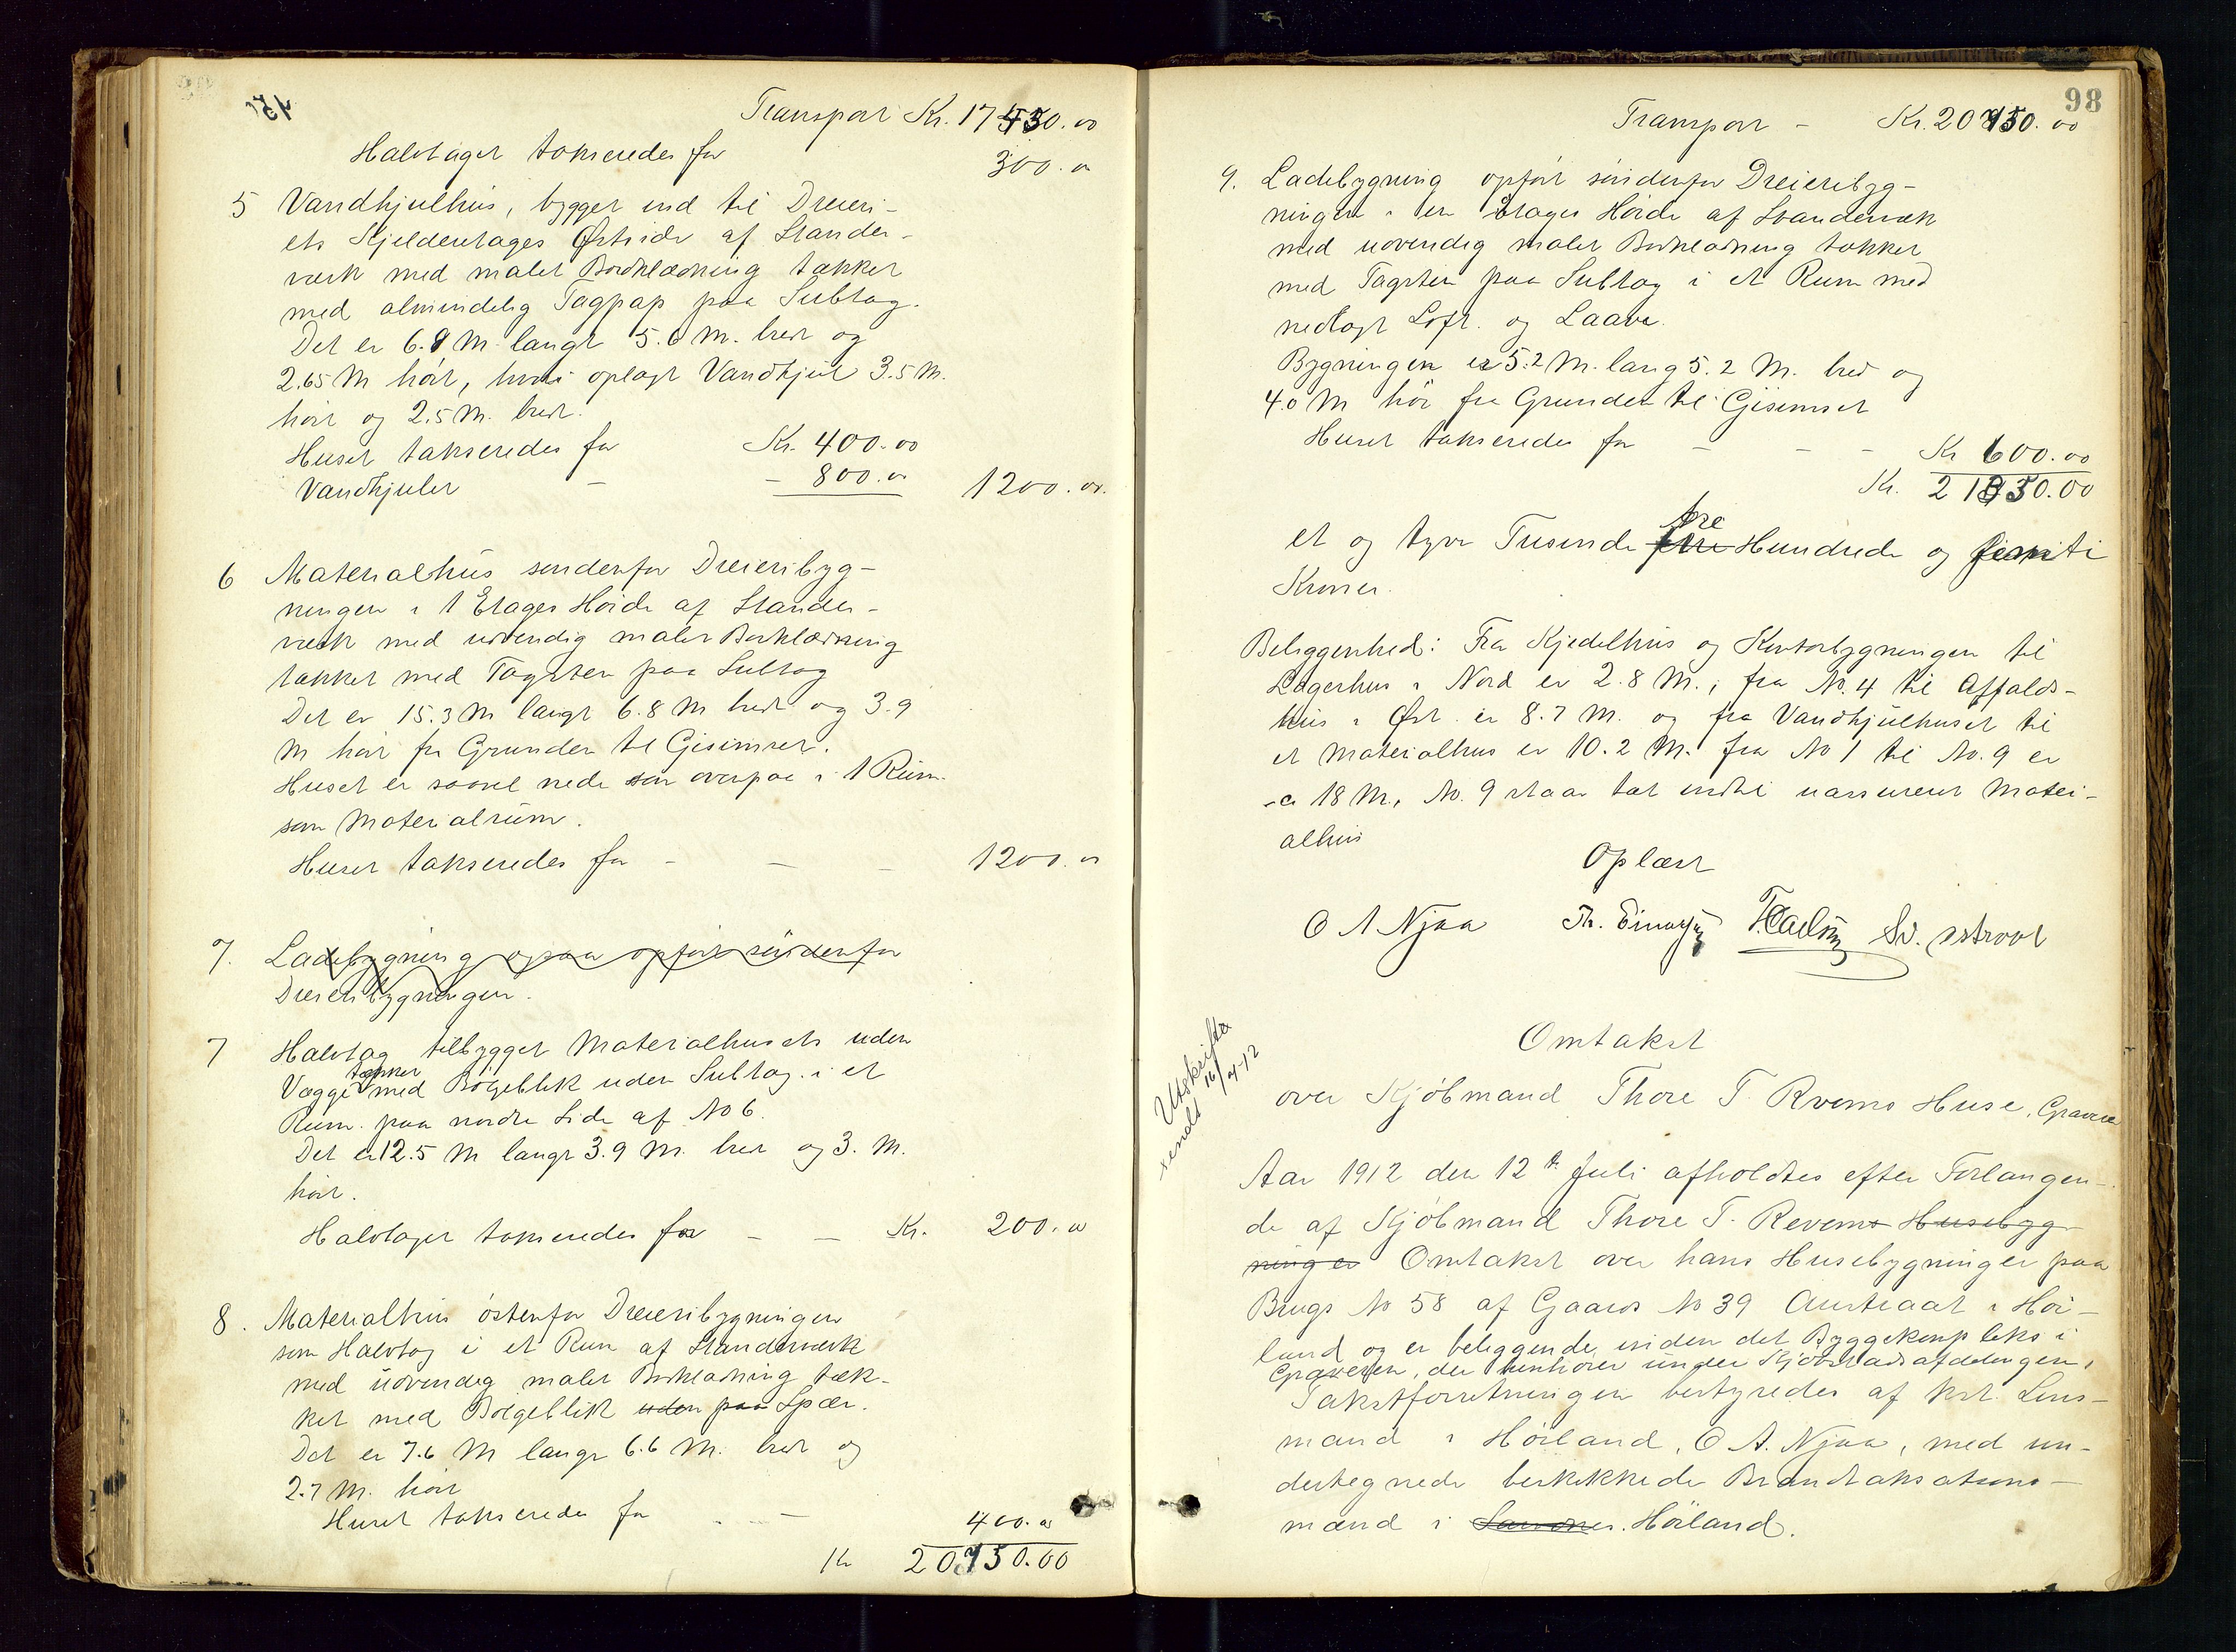 Transport Kr. 17450.00
Halvtaget takseredes for 300.00
5 Vandhjulhus, bygget ind til Dreieri-
ets Kjelderetages Østside af Stander-
værk med malet Bordklædning tækket
med almindelig Tagpap paa Subtag.
Det er 6.8 M langt 5.6 M. bredt og
2.65 M høit, hvori oplagt Vandhjul 3.5 M.
høit og 2.5 M. bredt.
Huset takseredes for Kr. 400.00
Vandhjulet - - 800.00 1200.00.
6 Materialhus søndenfor Dreieribyg-
ningen i 1 Etages Høide af Stander-
værk med udvendig malet Bordklædning
tækket med Tagsten paa Subtag
Det er 15.3 M langt 6.8 M bredt og 3.9
M høit fra Grunden til Gisimset.
Huset er saavel nede som ovenpaa i 1 Rum
som Materialrum.
Huset takseredes for - - - 1200.00
7. Ladebygning ogsaa opført søndenfor
Dreieribygningen.
7 Halvtag tilbygget Materialhusets uden
tækket
Vægge med Bølgeblik uden Subtag. i et
Rum paa nordre Side af No 6.
Det er 12.5 M langt 3.9 M. bredt og 3. M.
høit.
Halvtaget takseredes for - - Kr. 200.00
8. Materialhus østenfor Dreieribygningen
som Halvtag i et Rum af Standerværk
med udvendig malet Bordklædning tæk-
ket med Bølgeblik uden paa Spær.
Det er 7.6 M langt 6.6 M. bredt og
2.7 M. høit
Huset takseredes for - - 400.00
Kr 20750.00
98
Transport - Kr. 20750.00
9. Ladebygning opført søndenfor Dreieribyg-
ningen i en Etages Høide af Standerværk
med udvendig malet Bordklædning tækket
med Tagsten paa Subtag i et Rum med
nedlagt Loft. og Laave.
Bygningen er 5.2 M. lang 5.2 M. bred og
4.0 M høi fra Grunden til Gisimset
Huset takseredes for - - - Kr 600.00
Kr. 21350.00
tre
et og tyve Tusinde fire Hundrede og femti
Kroner.
Beliggenhed: Fra Kjedelhus og Kontorbygningen til
Lagerhus i Nord er 2.8 M.; fra No. 4 til Affalds-
hus i Øst er 8.7 M. og fra Vandhjulhuset til
et Materialhus er 10.2 M. fra No 1 til No. 9 er
ca 18 M., No. 9 staar tæt indtil uassureret Materi-
alhus
Oplæst
O A Njaa Th. Sv.
Omtakst
over Kjøbmand Thore T. Rvems Huse, Graveren
Utskrift
sendt 16/4-12
Aar 1912 den 12te Juli afholdtes efter Forlangen-
de af Kjøbmand Thore T. Revem Husebyg-
ninger Omtakst over hans Husebygninger paa
Brugs No 58 af Gaards No 39 Austraat i Høi-
land og er beliggende inden det Byggekompleks i
Graveren, der henhører under Kjøbstadsafdelingen,
Takstforretningen bestyredes af kst. Lens-
mand i Høiland, O A. Njaa, med un-
dertegnede beskikkede Brandtaksations-
mænd i Sandnes. Høiland.